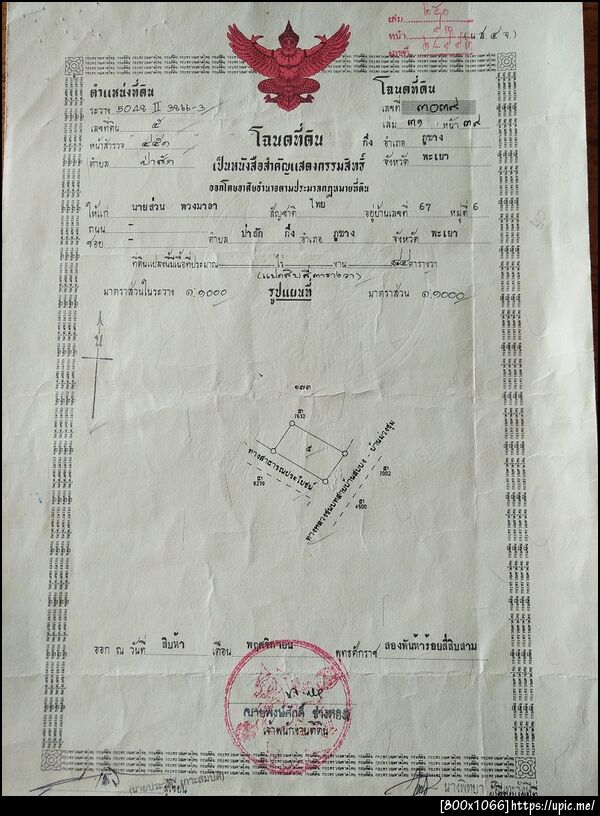 เล่ม ๒๖๐
หน้า
เลขที่
(น.ส. ๔ จ.)
ตำแหน่งที่ดิน
ระวาง 5048 II 3866-3
เลขที่ดิน ๕
หน้าสำรวจ ๔๕๑
ตำบล ป่าสัก
โฉนดที่ดิน
เลขที่ ๓๐๓๙
เล่ม ๓๑ หน้า ๓๙
กิ่ง อำเภอ ภูซาง
จังหวัด พะเยา
โฉนดที่ดิน
เป็นหนังสือสำคัญแสดงกรรมสิทธิ์
ออกโดยอาศัยอำนาจตามประมวลกฎหมายที่ดิน
ให้แก่ นายส่วน พวงมาลา สัญชาติ ไทย อยู่บ้านเลขที่ 67 หมู่ที่ 6
ถนน - ตำบล ป่าสัก กิ่ง อำเภอ ภูซาง จังหวัด พะเยา
ซอย -
ที่ดินแปลงนี้มีเนื้อที่ประมาณ - ไร่ - งาน ๘๔ ตารางวา
(แปดสิบสี่ตารางวา)
มาตราส่วนในระวาง ๑:๑๐๐๐ รูปแผนที่ มาตราส่วน ๑:๑๐๐๐
น
๑๗๓
ส๑
7632
๕
ทางสาธารณประโยชน์
ส๑
8239
ทางหลวงชนบทสายบ้านสบบง - บ้านม่วงชุม
ส๑
7002
ส๑
4500
ออก ณ วันที่ สิบห้า เดือน พฤศจิกายน พุทธศักราช สองพันห้าร้อยสี่สิบสาม
นายพงษ์ศักดิ์ ช่างทอง
เจ้าพนักงานที่ดิน
นางพัทยา
[800x1066]https://upic.me/